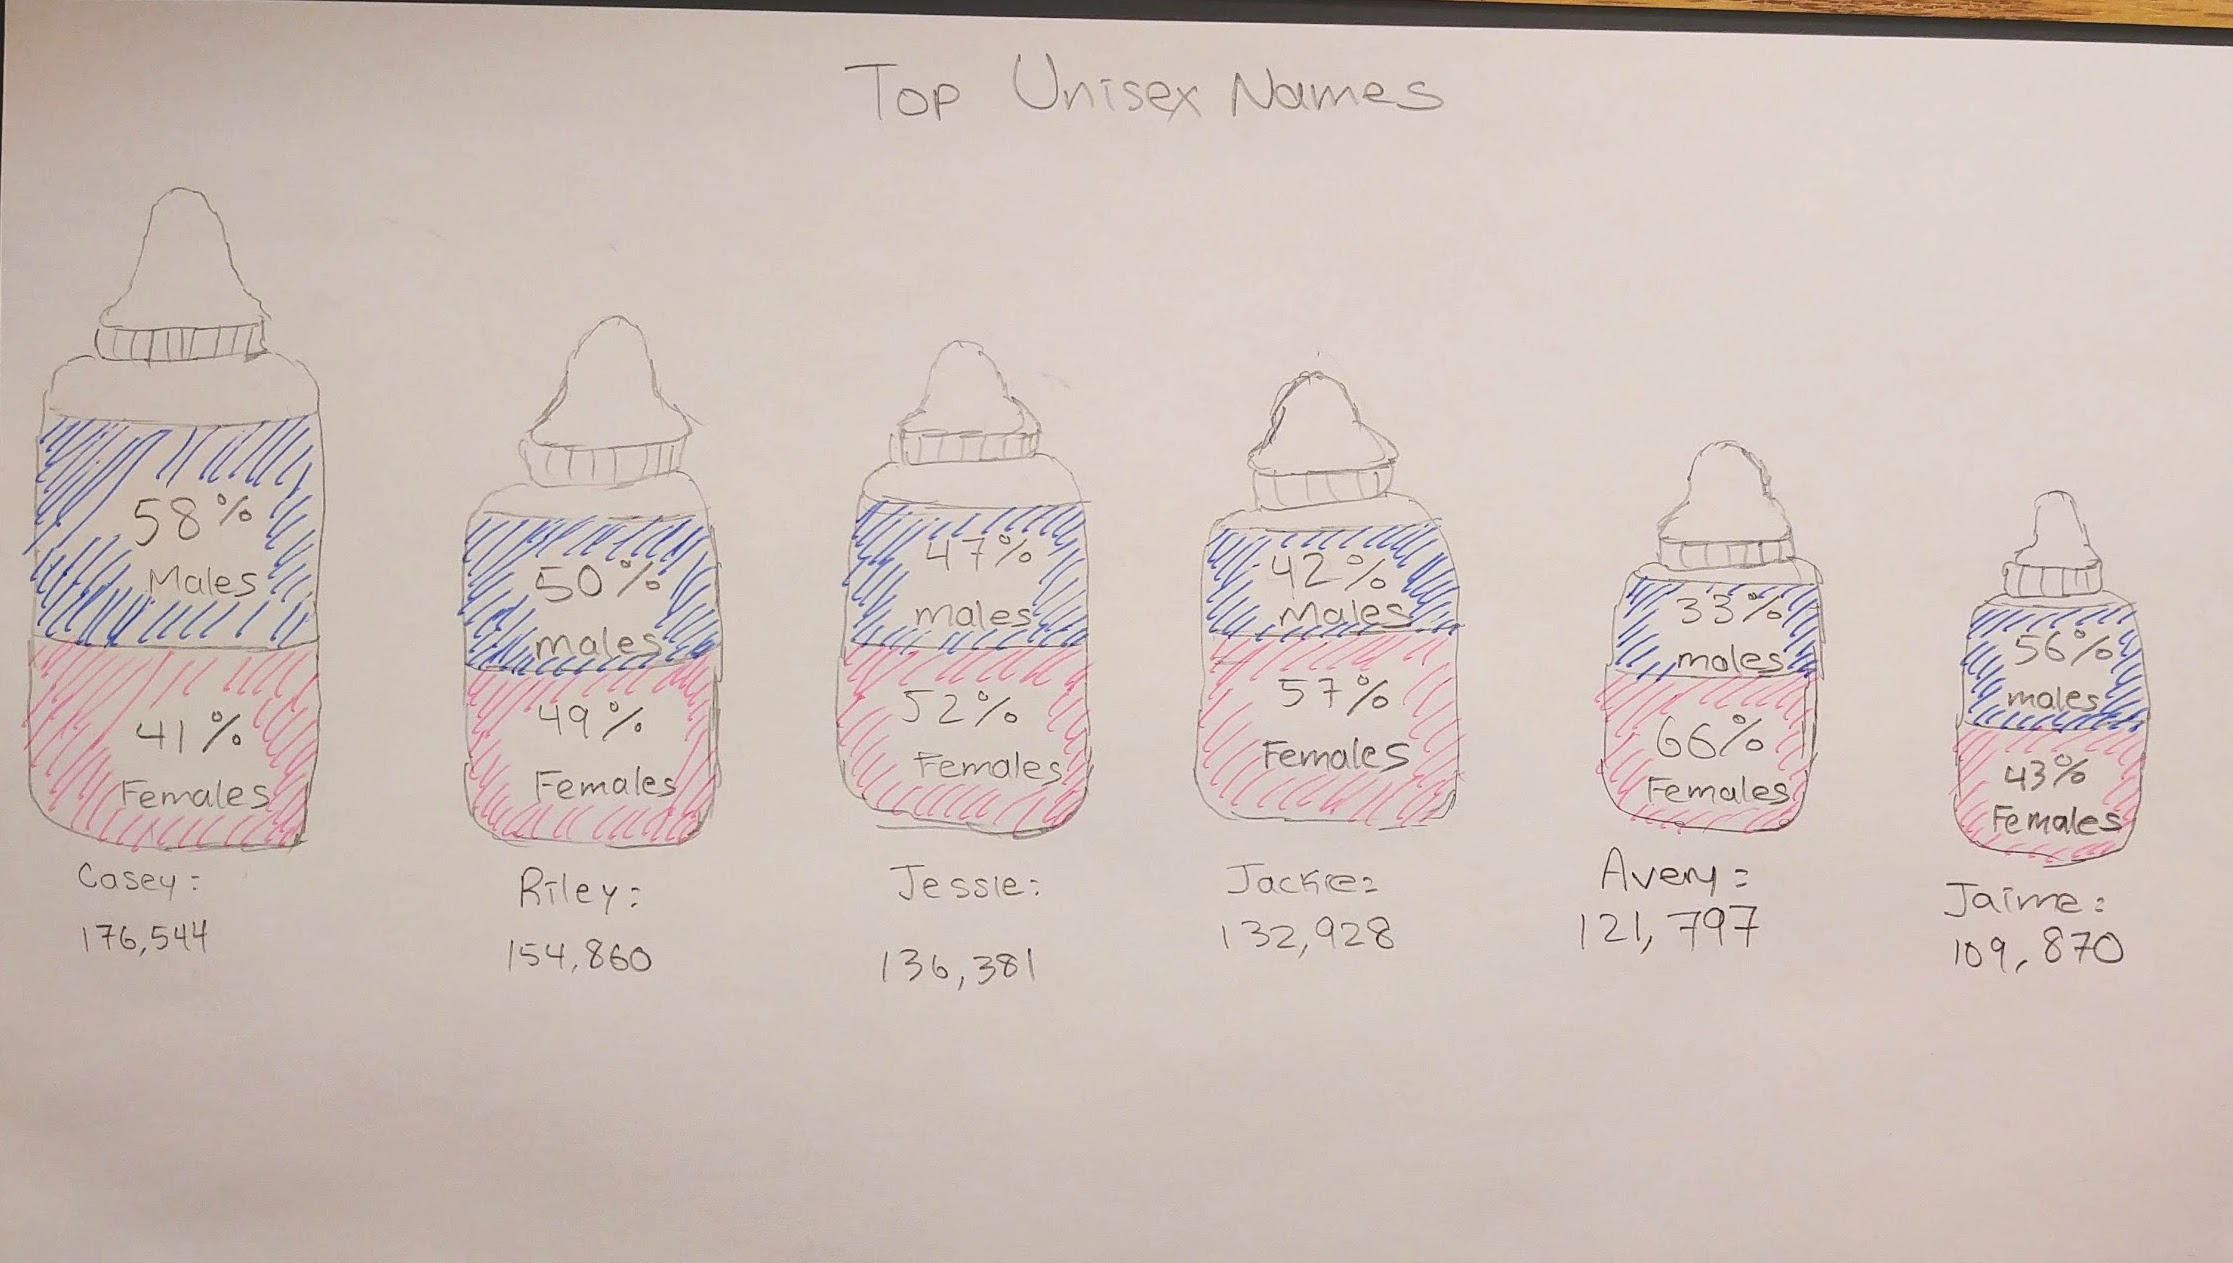 Top Unisex Names
58%
Males
41%
Females
Casey:
176,544
50%
males
49%
Females
Riley:
154,860
47%
males
52%
Females
Jessie:
136,381
42%
Males
57%
Females
Jackie:
132,928
33%
males
66%
Females
Avery:
121,797
56%
males
43%
Females
Jaime:
109,870